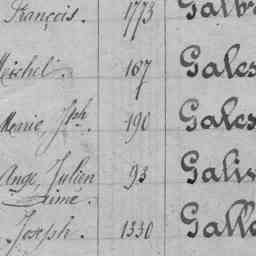 François. 1773 Galb
Michel. 167 Gales
Marie, Jph. 190 Gales
Ange, Julien 93 Gali
Aimé.
Joseph. 1330 Galla